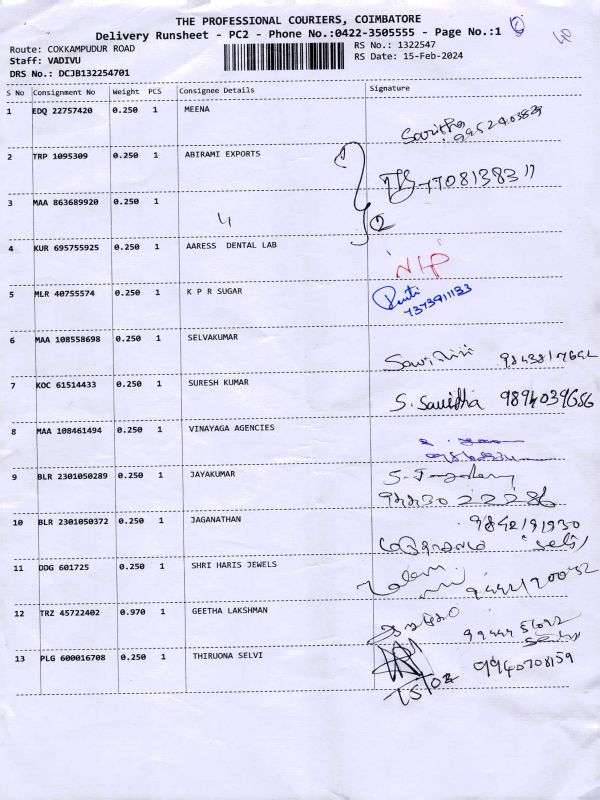 THE PROFESSIONAL COURIERS, COIMBATORE
Delivery Runsheet - PC2 - Phone No.:0422-3505555 - Page No.:1
Route: COKKAMPUDUR ROAD
RS No.: 1322547
Staff: VADIVU
RS Date: 15-Feb-2024
DRS No.: DCJB132254701
S No Consignment No Weight PCS Consignee Details Signature
1 EDQ 22757420 0.250 1 MEENA
2 TRP 1095309 0.250 1 ABIRAMI EXPORTS
3 MAA 863689920 0.250 1
4 KUR 695755925 0.250 1 AARESS DENTAL LAB
5 MLR 40755574 0.250 1 K P R SUGAR
7373911133
6 MAA 108558698 0.250 1 SELVAKUMAR
7 KOC 61514433 0.250 1 SURESH KUMAR S. Savidha 9894039686
8 MAA 108461494 0.250 1 VINAYAGA AGENCIES
9 BLR 2301050289 0.250 1 JAYAKUMAR
94430 22286
10 BLR 2301050372 0.250 1 JAGANATHAN
11 DDG 601725 0.250 1 SHRI HARIS JEWELS
12 TRZ 45722402 0.970 1 GEETHA LAKSHMAN
13 PLG 600016708 0.250 1 THIRUONA SELVI 9940708159